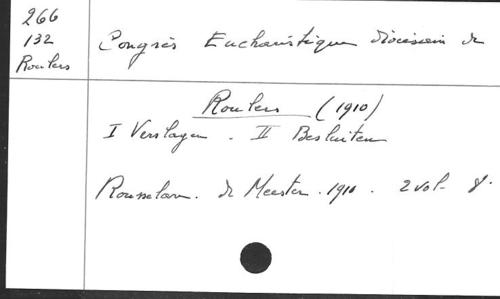 266
132
Roulers
Congrès Eucharistique diocésain de
Roulers (1910)
I Verslagen . II Besluiten
Rousselare. de Meester. 1910. 2 vol. 8°